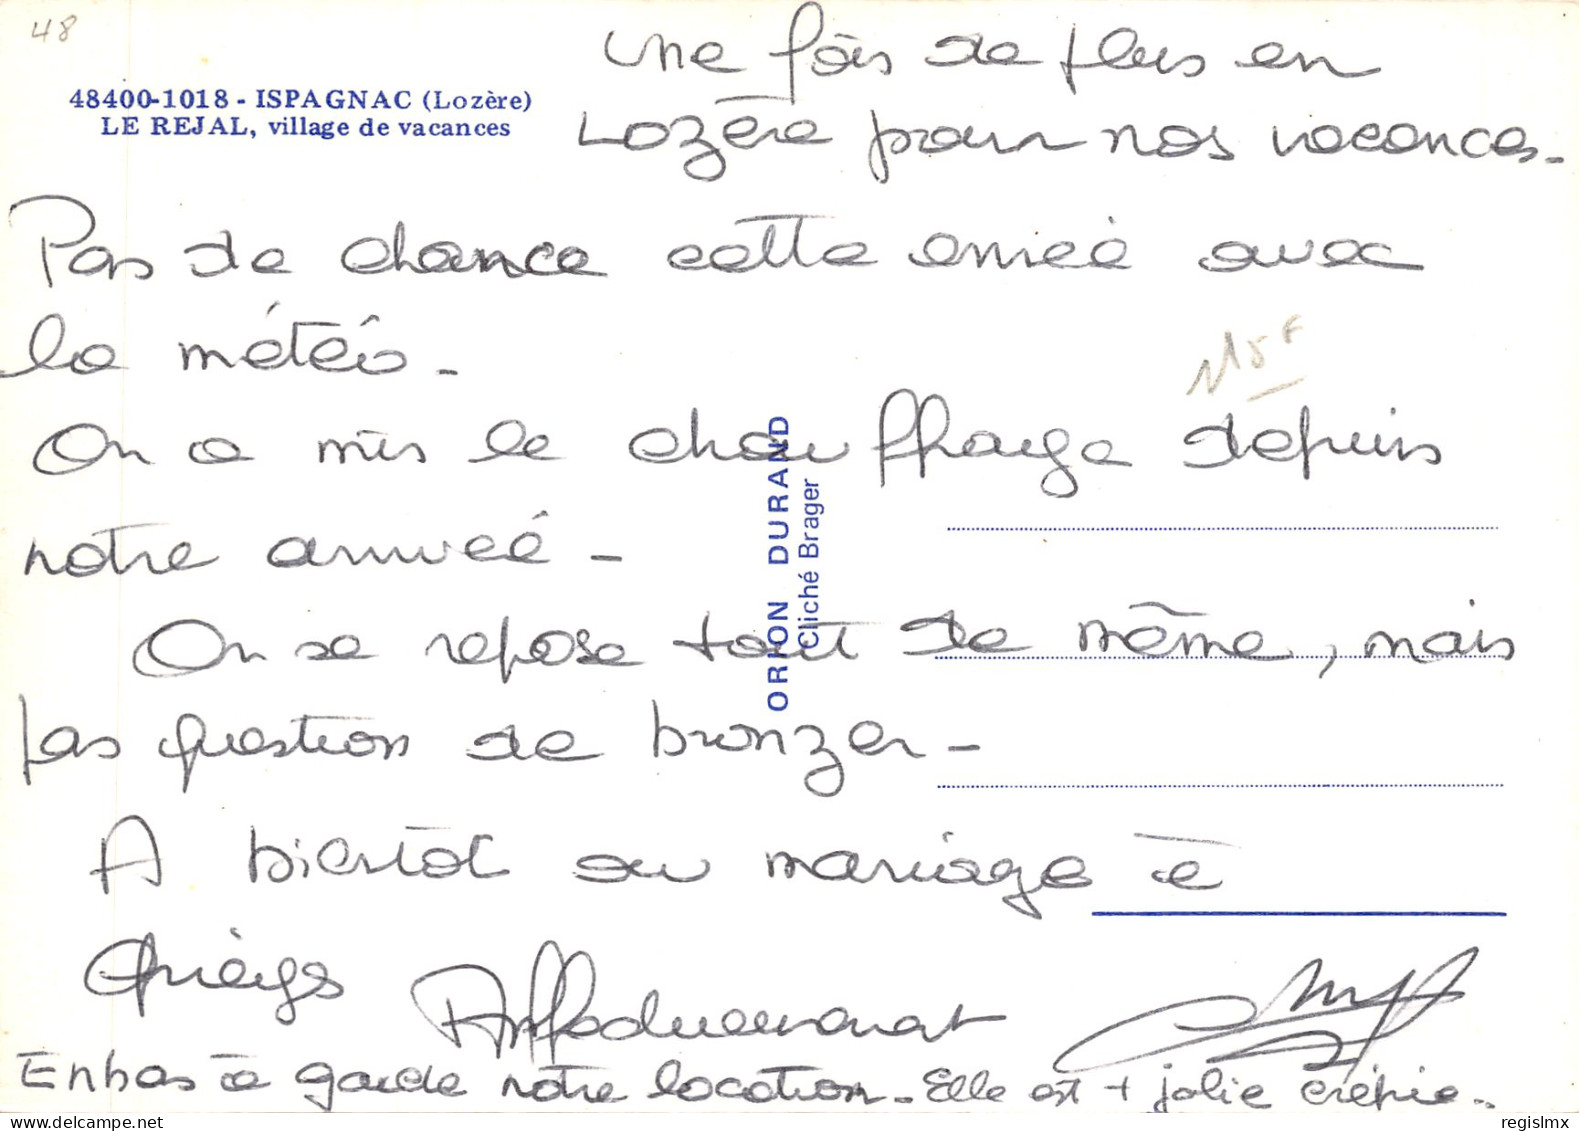 48
48400-1018 - ISPAGNAC (Lozère)
LE REJAL, village de vacances
Une fois de plus en
Lozère pour nos vacances.
Pas de chance cette année avec
la météo -
On a mis le chauffage depuis
notre arrivée -
On se repose tout de même, mais
pas question de bronzer -
A bientôt au mariage à
Affectueusement
En bas à garde notre location - Elle est + jolie crépie..
ORION DURAND
Cliché Brager
15F
regislmx